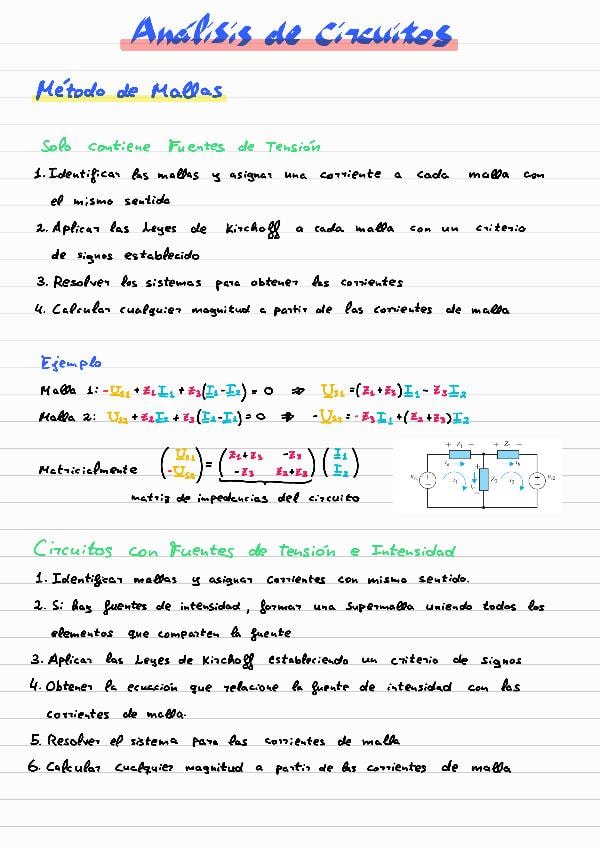 Análisis de Circuitos
Método de Mallas
Solo contiene Fuentes de Tensión
1. Identificar las mallas y asignar una corriente a cada malla con
el mismo sentido
2. Aplicar las Leyes de Kirchoff a cada malla con un criterio
de signos establecido
3. Resolver los sistemas para obtener las corrientes
4. Calcular cualquier magnitud a partir de las corrientes de malla
Ejemplo
Malla 1: -Us1 + Z1I1 + Z3(I1-I2) = 0 ⇒ Us1 = (Z1+Z3)I1 - Z3I2
Malla 2: Us2 + Z2I2 + Z3(I2-I1) = 0 ⇒ -Us2 = -Z3I1 + (Z2+Z3)I2
Matricialmente (Us1 -Us2) = (Z1+Z3 -Z3 -Z3 Z2+Z3) (I1 I2)
matriz de impedancias del circuito
+ Z1 - + Z2 -
Z3
Circuitos con Fuentes de Tensión e Intensidad
1. Identificar mallas y asignar corrientes con mismo sentido.
2. Si hay fuentes de intensidad, formar una supermalla uniendo todos los
elementos que comparten la fuente
3. Aplicar las Leyes de Kirchoff estableciendo un criterio de signos
4. Obtener la ecuación que relacione la fuente de intensidad con las
corrientes de malla.
5. Resolver el sistema para las corrientes de malla
6. Calcular cualquier magnitud a partir de las corrientes de malla